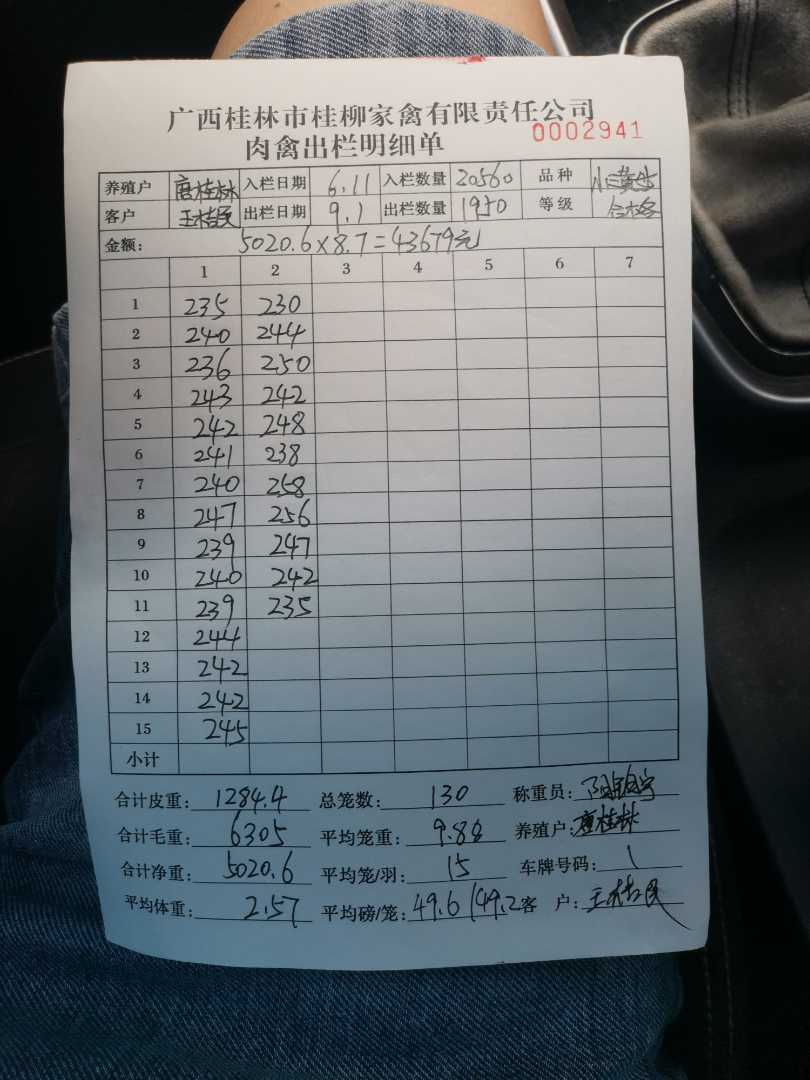 广西桂林市桂柳家禽有限责任公司
肉禽出栏明细单 0002941
养殖户 唐桂林 入栏日期 6.11 入栏数量 20560 品种
客户 出栏日期 9.1 出栏数量 1950 等级 合格
金额: 5020.6×8.7=43679元
1 2 3 4 5 6 7
1 235 230
2 240 244
3 236 250
4 243 242
5 242 248
6 241 238
7 240 258
8 247 256
9 239 247
10 240 242
11 239 235
12 244
13 242
14 242
15 245
小计
合计皮重: 1284.4 总笼数: 130 称重员:
合计毛重: 6305 平均笼重: 9.88 养殖户: 唐桂林
合计净重: 5020.6 平均笼/羽: 15 车牌号码:
平均体重: 2.57 平均磅/笼: 49.6/49.2 客 户: